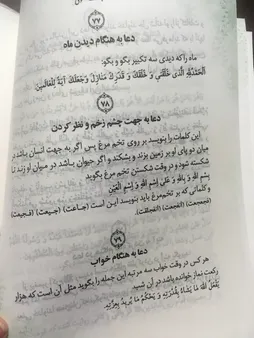 ۷۷
دعا به هنگام دیدن ماه
ماه را که دیدی سه تکبیر بگو و بگو:
اَلْحَمْدُلِلّهِ الَّذی خَلَقَنی وَ خَلَقَکَ وَ قَدَّرَکَ مَنازِلَ وَجَعَلَکَ آیَةً لِلْعالَمینَ
۷۸
دعا به جهت چشم زخم و نظر کردن
این کلمات را بنویسد بر روی تخم مرغ پس اگر به جهت انسان باشد در
میان دو پای او بر زمین بزند و بشکند و اگر حیوان باشد در میان او زند تا
شکسته شود و در وقت شکستن تخم مرغ بگوید
بِسْمِ اللهِ وَ بِاللهِ وَ عَلی اِسْمِ اللهِ وَ اِسْمِ الْعَیْنِ
و کلماتی که بر تخم‌مرغ باید بنویسد این است (جاعت) (جسیعت) (فجیعت)
(فجمجعت) (الفجعت) (الفجلفت).
۷۹
دعا به هنگام خواب
هر کس در وقت خواب سه مرتبه این جمله را بگوید مثل آن است که هزار
رکعت نماز خوانده باشد در آن شب.
یَفْعَلُ اللهُ ما یَشاءُ بِقُدْرَتِهِ وَ یَحْکُمُ ما یُریدُ بِعِزَّتِهِ.